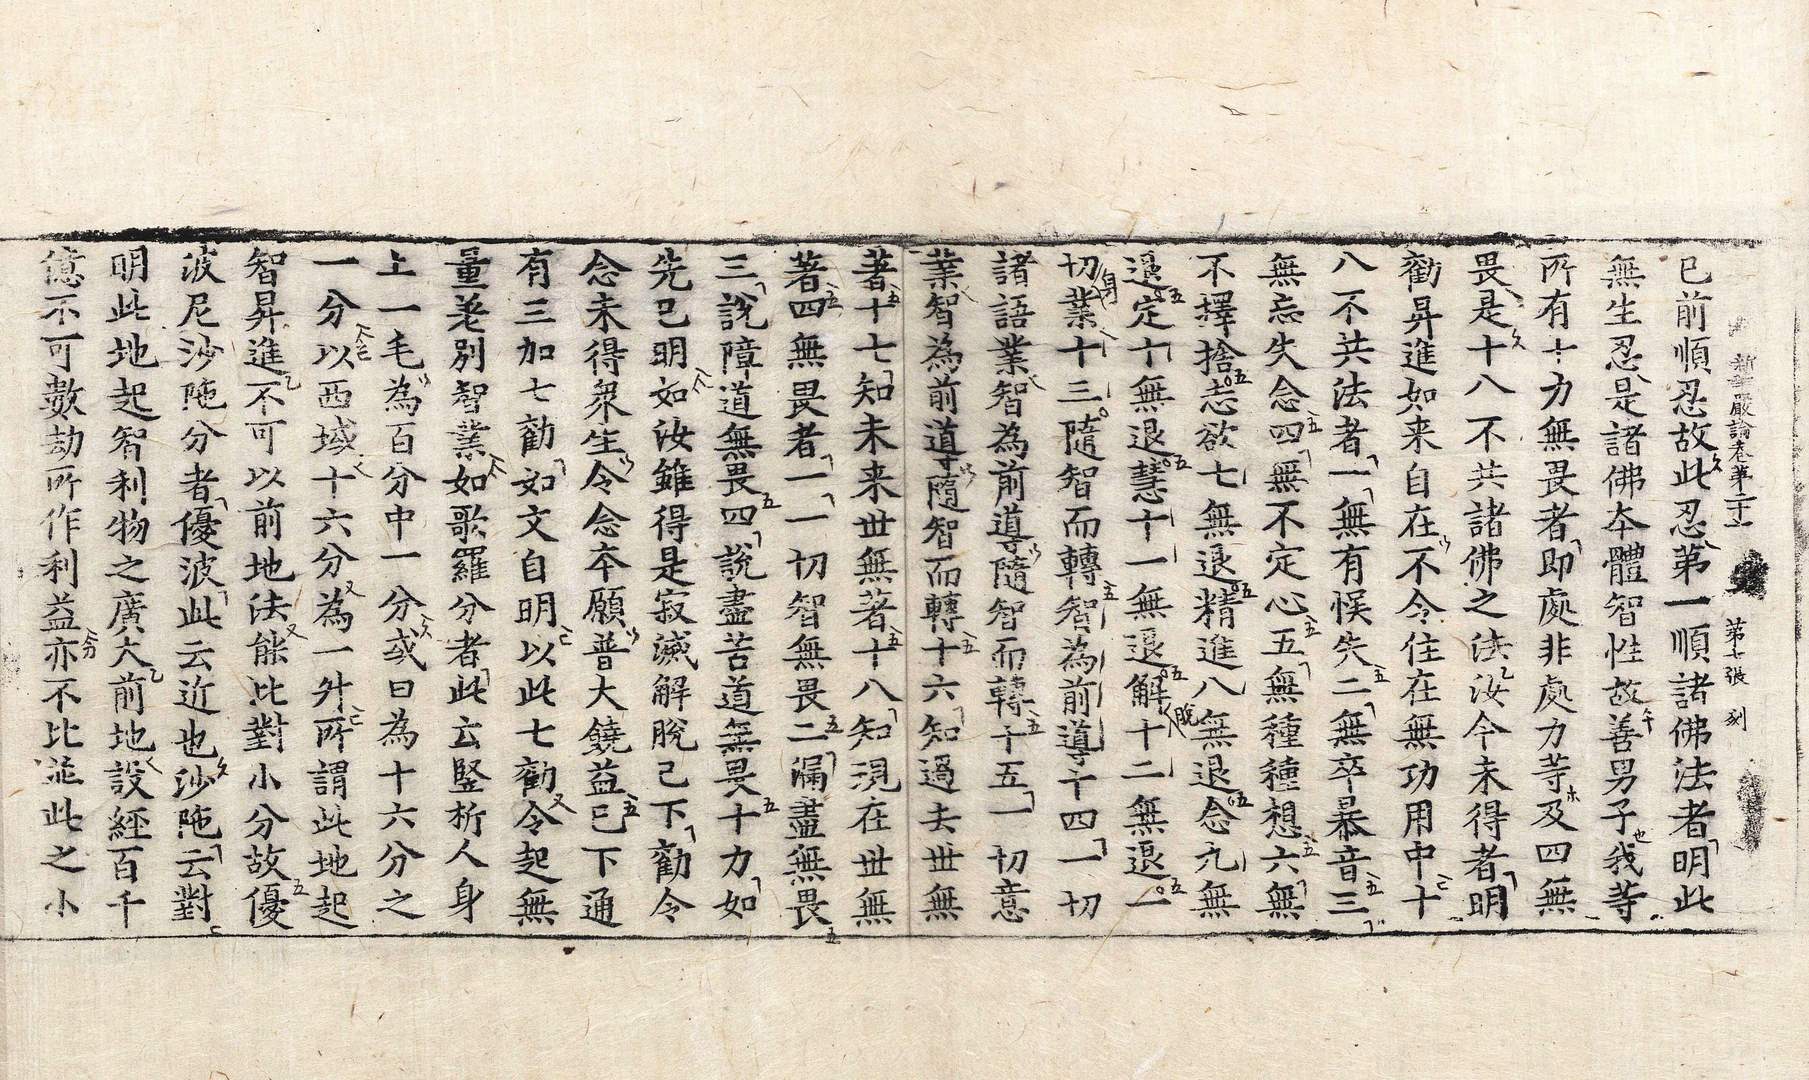 新華嚴論卷第二十一 第十張 刻
已前順忍故此忍第一順諸佛法者明此
無生忍是諸佛本體智性故善男子我等
所有十力無畏者即處非處力等及四無
畏是十八不共諸佛之法汝今未得者明
勸昇進如来自在不令住在無功用中十
八不共法者一無有悞失二無卒暴音三
無忘失念四無不定心五無種種想六無
不擇捨志欲七無退精進八無退念九無
退定十無退慧十一無退解脫十二無退一
切身業十三隨智而轉智為前導十四一切
諸語業智為前導隨智而轉十五一切意
業智為前導隨智而轉十六知過去世無
著十七知未来世無著十八知現在世無
著四無畏者一一切智無畏二漏盡無畏
三說障道無畏四說盡苦道無畏十力如
先已明如汝雖得是寂滅解脫已下勸令
念未得衆生令念本願普大饒益已下通
有三加七勸如文自明以此七勸令起無
量差別智業如歌羅分者此云竪析人身
上一毛為百分中一分或曰為十六分之
一分以西域十六分為一升所謂此地起
智昇進不可以前地法能比對小分故優
波尼沙陁分者優波此云近也沙陁云對
明此地起智利物之廣大前地設經百千
億不可數劫所作利益亦不比並此之小